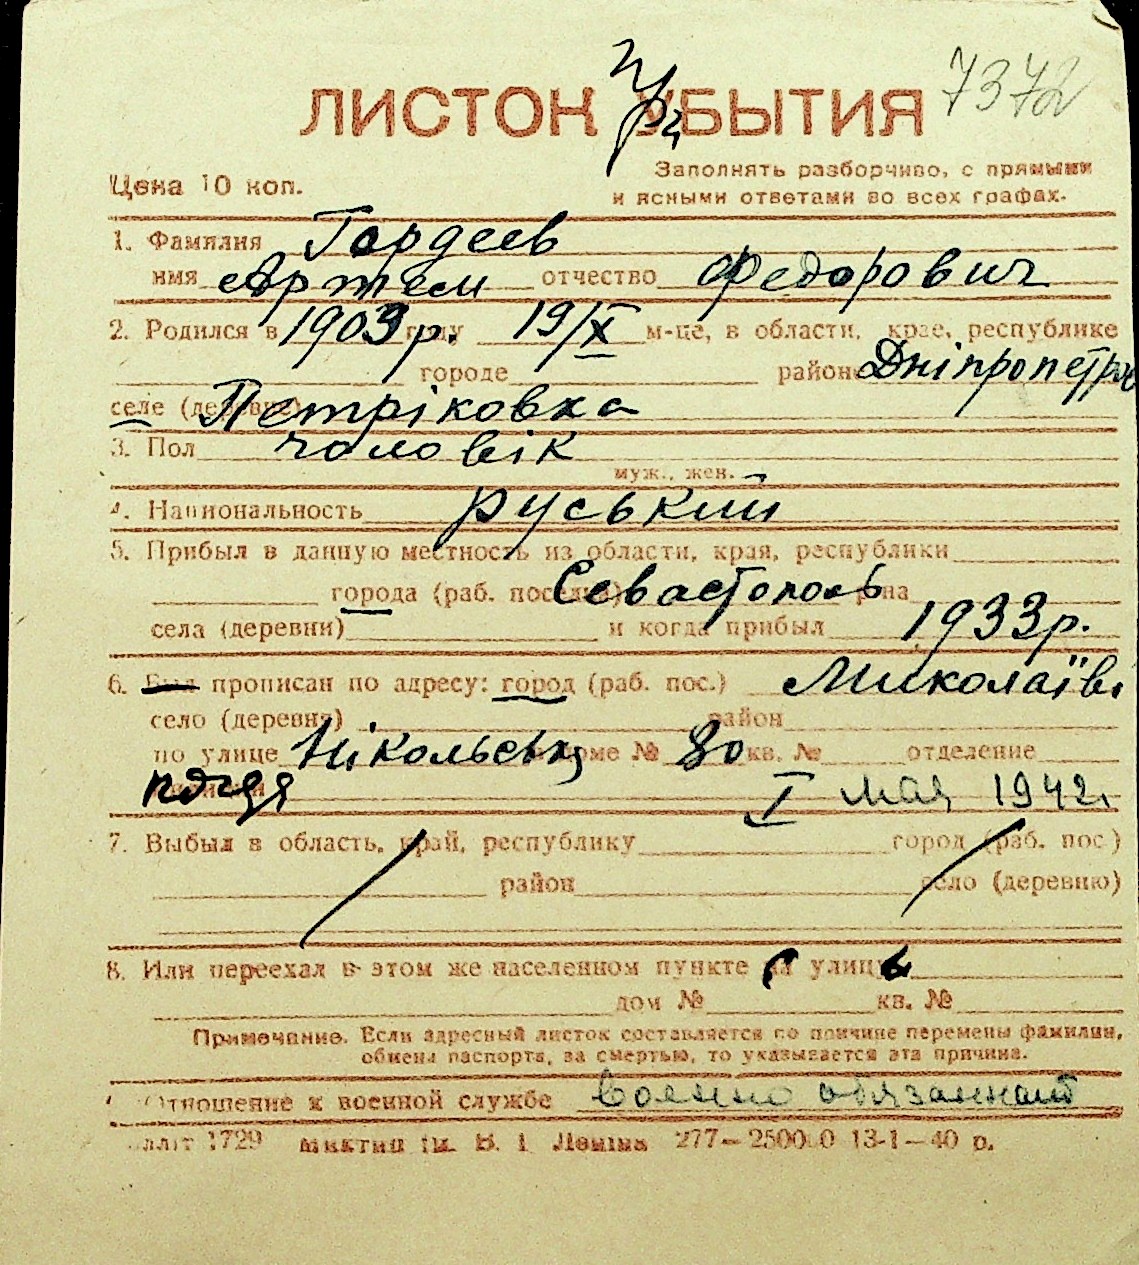 7372
ЛИСТОК УБЫТИЯ
Цена 10 коп.
Заполнять разборчиво, с прямыми
и ясными ответами во всех графах.
1. Фамилия Гордеев
имя Артем отчество Федорович
2. Родился в 1903 р. году 19/X м-це, в области, крае, республике
городе район Дніпропетров
селе (деревне) Петріковка
3. Пол чоловік
муж., жен.
4. Национальность руський
5. Прибыл в данную местность из области, края, республики
города (раб. поселка) Севастополь р-на
села (деревни) и когда прибыл 1933 р.
6. Был прописан по адресу: город (раб. пос.) Миколаїв
село (деревня) район
по улице Нікольська в доме № 80 кв. № отделение
милиции I мая 1942 г.
7. Выбыл в область, край, республику город (раб. пос.)
район село (деревню)
8. Или переехал в этом же населенном пункте на улицу
дом № кв. №
Примечание. Если адресный листок составляется по причине перемены фамилии,
обмена паспорта, за смертью, то указывается эта причина.
Отношение к военной службе военно обязанный
1729 Миктип ім. В. І. Леніна 277—25000 13-1—40 р.